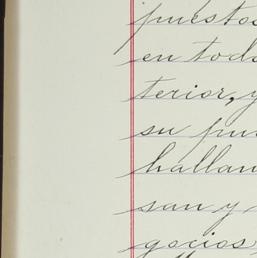 puestos
en toda
terior, y
su pu
hallan
san y
gocios,